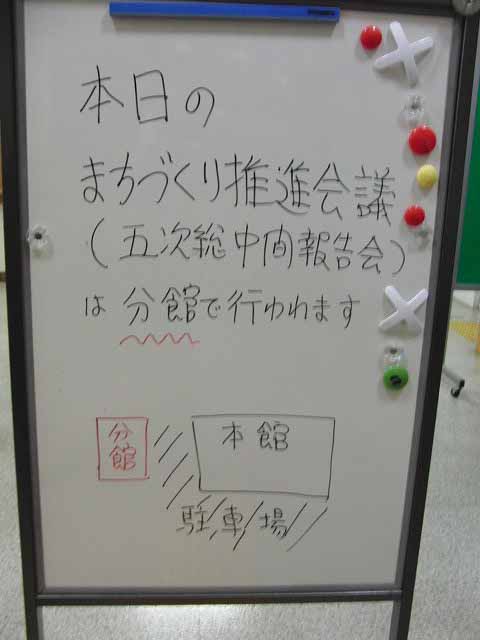 本日の
まちづくり推進会議
(五次総中間報告会)
は分館で行われます
分館
本館
駐車場